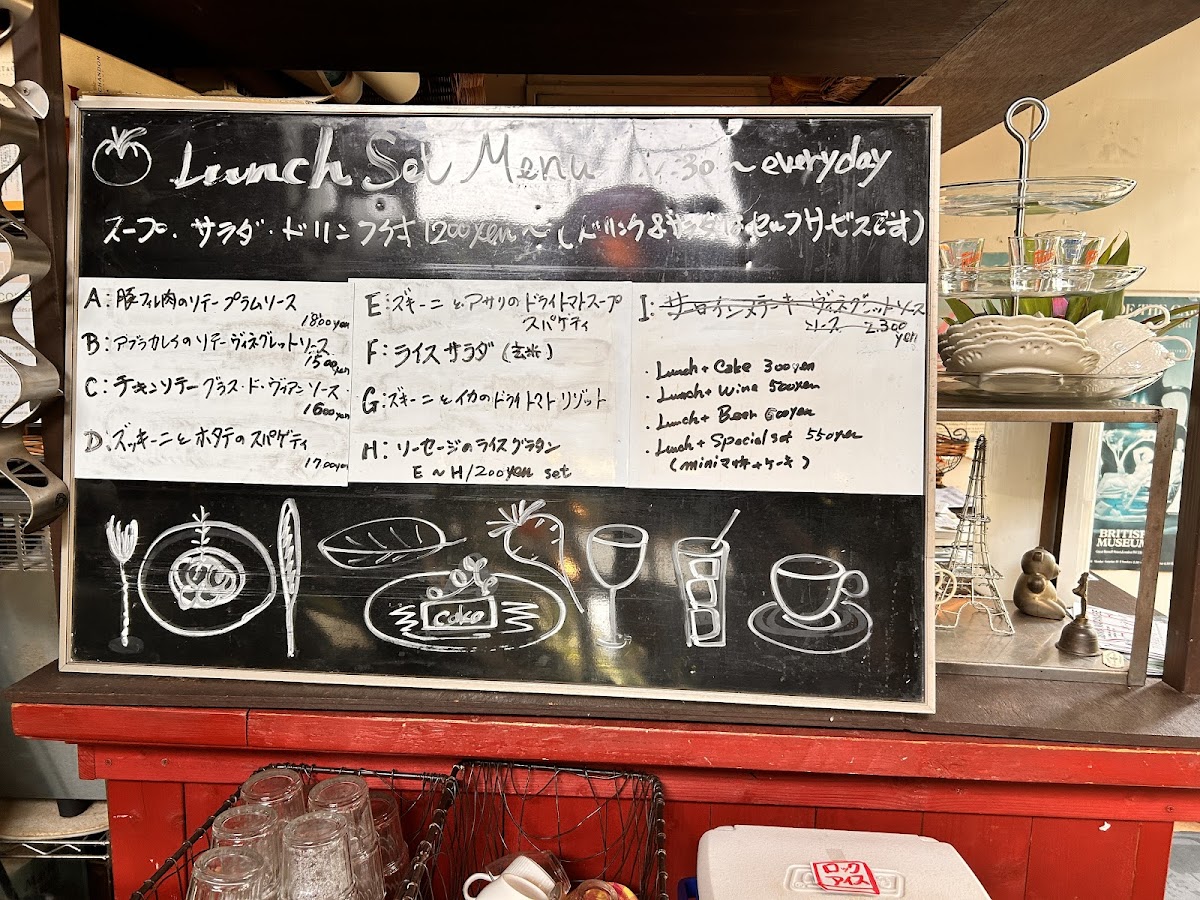 Lunch Set Menu 11:30 ~ everyday
スープ・サラダ・ドリンク付 1200yen~ (ドリンク&サラダはセルフサービスです)
A:豚フィレ肉のソテー プラムソース
1800yen
B:アブラカレイのソテー ヴィネグレットソース
1500yen
C:チキンソテー グラス・ド・ヴィアンソース
1600yen
D:ズッキーニとホタテのスパゲティ
1700yen
E:ズキーニとアサリのドライトマトスープ
スパゲティ
F:ライスサラダ(玄米)
G:ズキーニとイカのドライトマトリゾット
H:ソーセージのライスグラタン
E~H/1200yen set
I:サーロインステーキ ヴィネグレットソース
ソース 2.300
yen
・Lunch+Cake 300yen
・Lunch+Wine 500yen
・Lunch+Beer 600yen
・Lunch+Special set 550yen
cake
BRITISH
MUSEUM
ロック
アイス